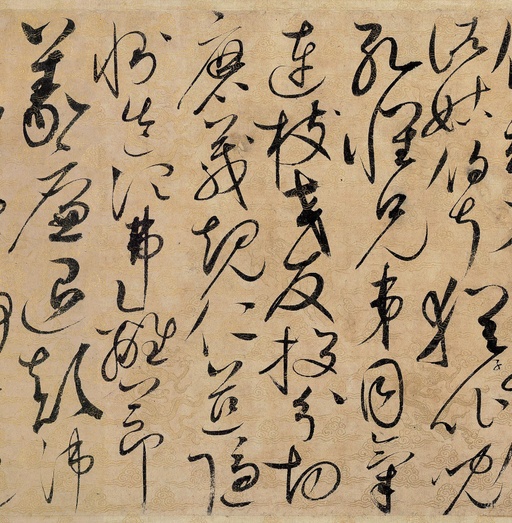 諸姑伯叔猶子比兒
孔懷兄弟同氣
連枝交友投分切
磨箴規仁慈隱
惻造次弗離節
義廉退顛沛